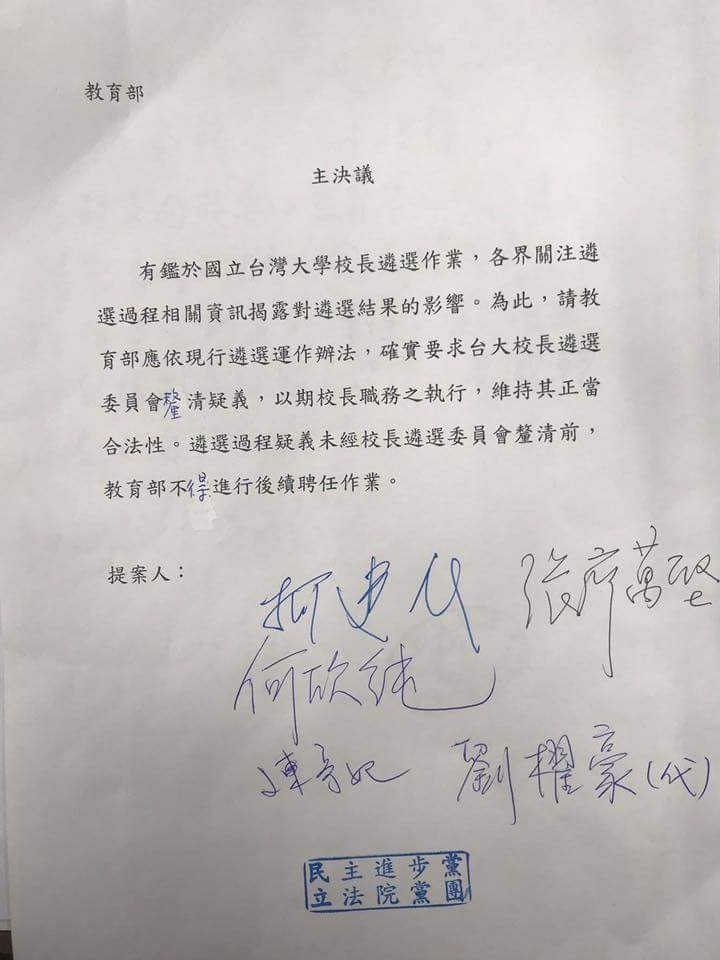 教育部
主決議
有鑑於國立台灣大學校長遴選作業，各界關注遴
選過程相關資訊揭露對遴選結果的影響。為此，請教
育部應依現行遴選運作辦法，確實要求台大校長遴選
委員會釐清疑義，以期校長職務之執行，維持其正當
合法性。遴選過程疑義未經校長遴選委員會釐清前，
教育部不得進行後續聘任作業。
提案人：
柯建 張廖萬堅
何欣純
陳亭妃 劉櫂豪(代)
民主進步黨
立法院黨團